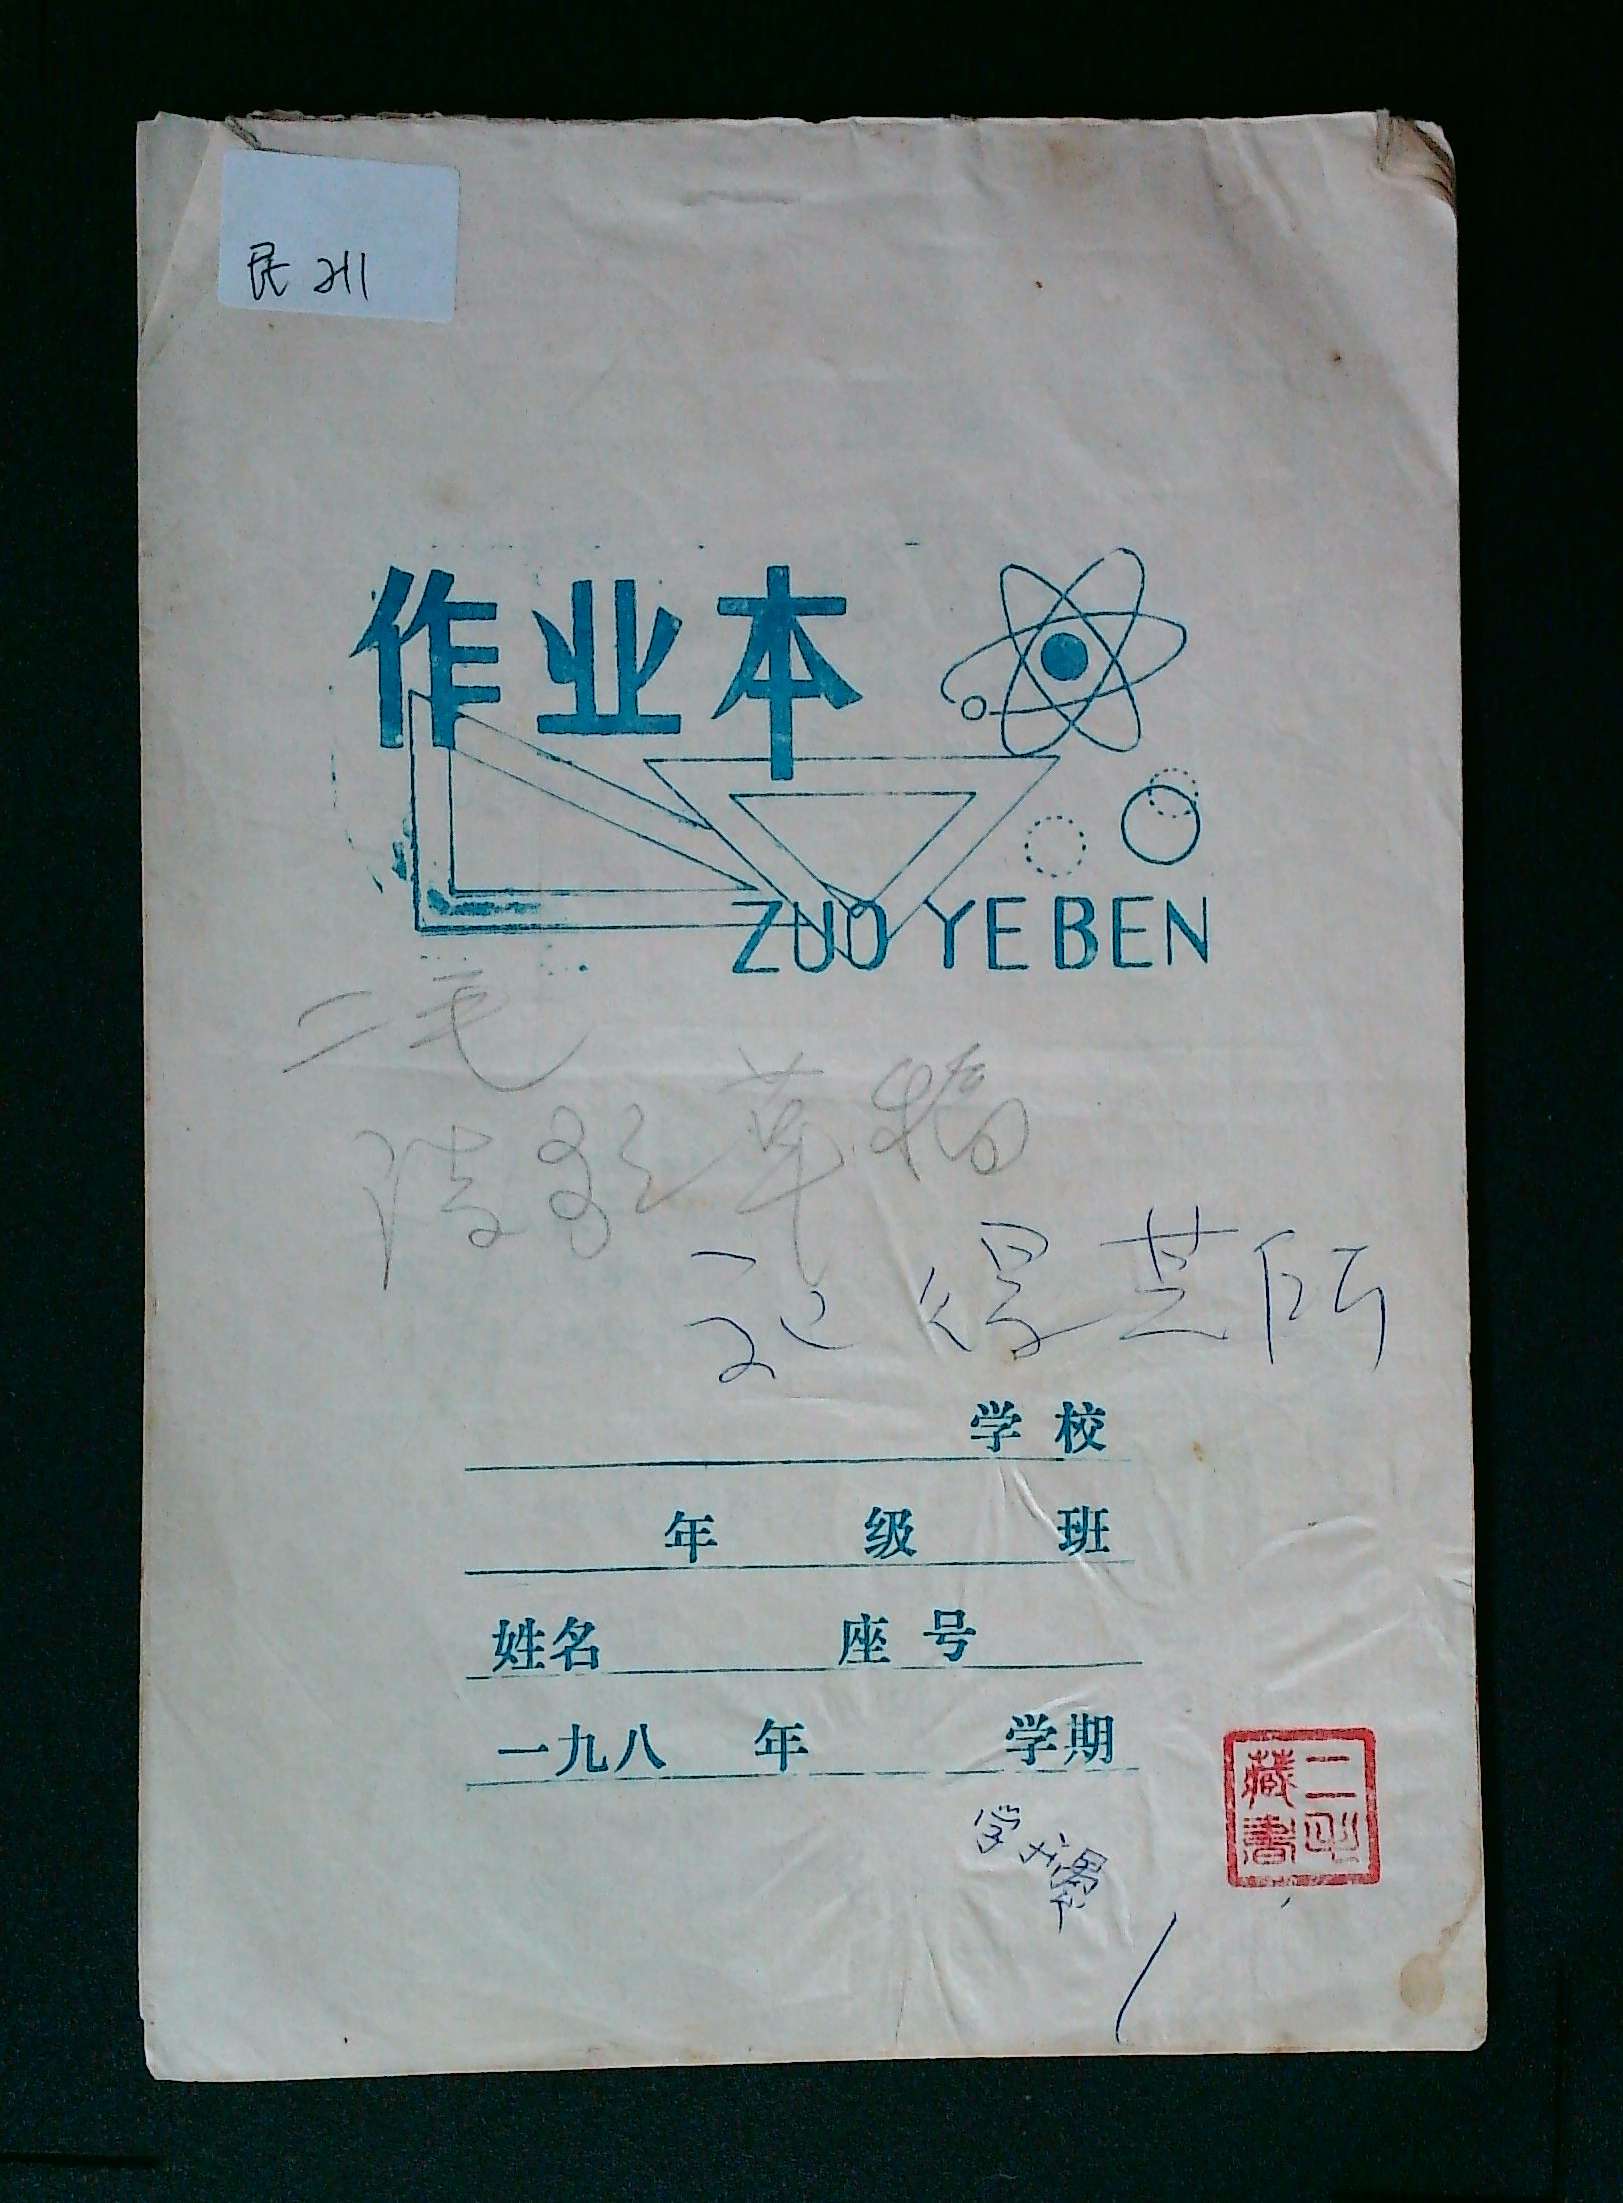 民 211
作业本
ZUO YE BEN
二毛
草稿
学校
年 级 班
姓名 座号
一九八 年 学期
二毛
藏書